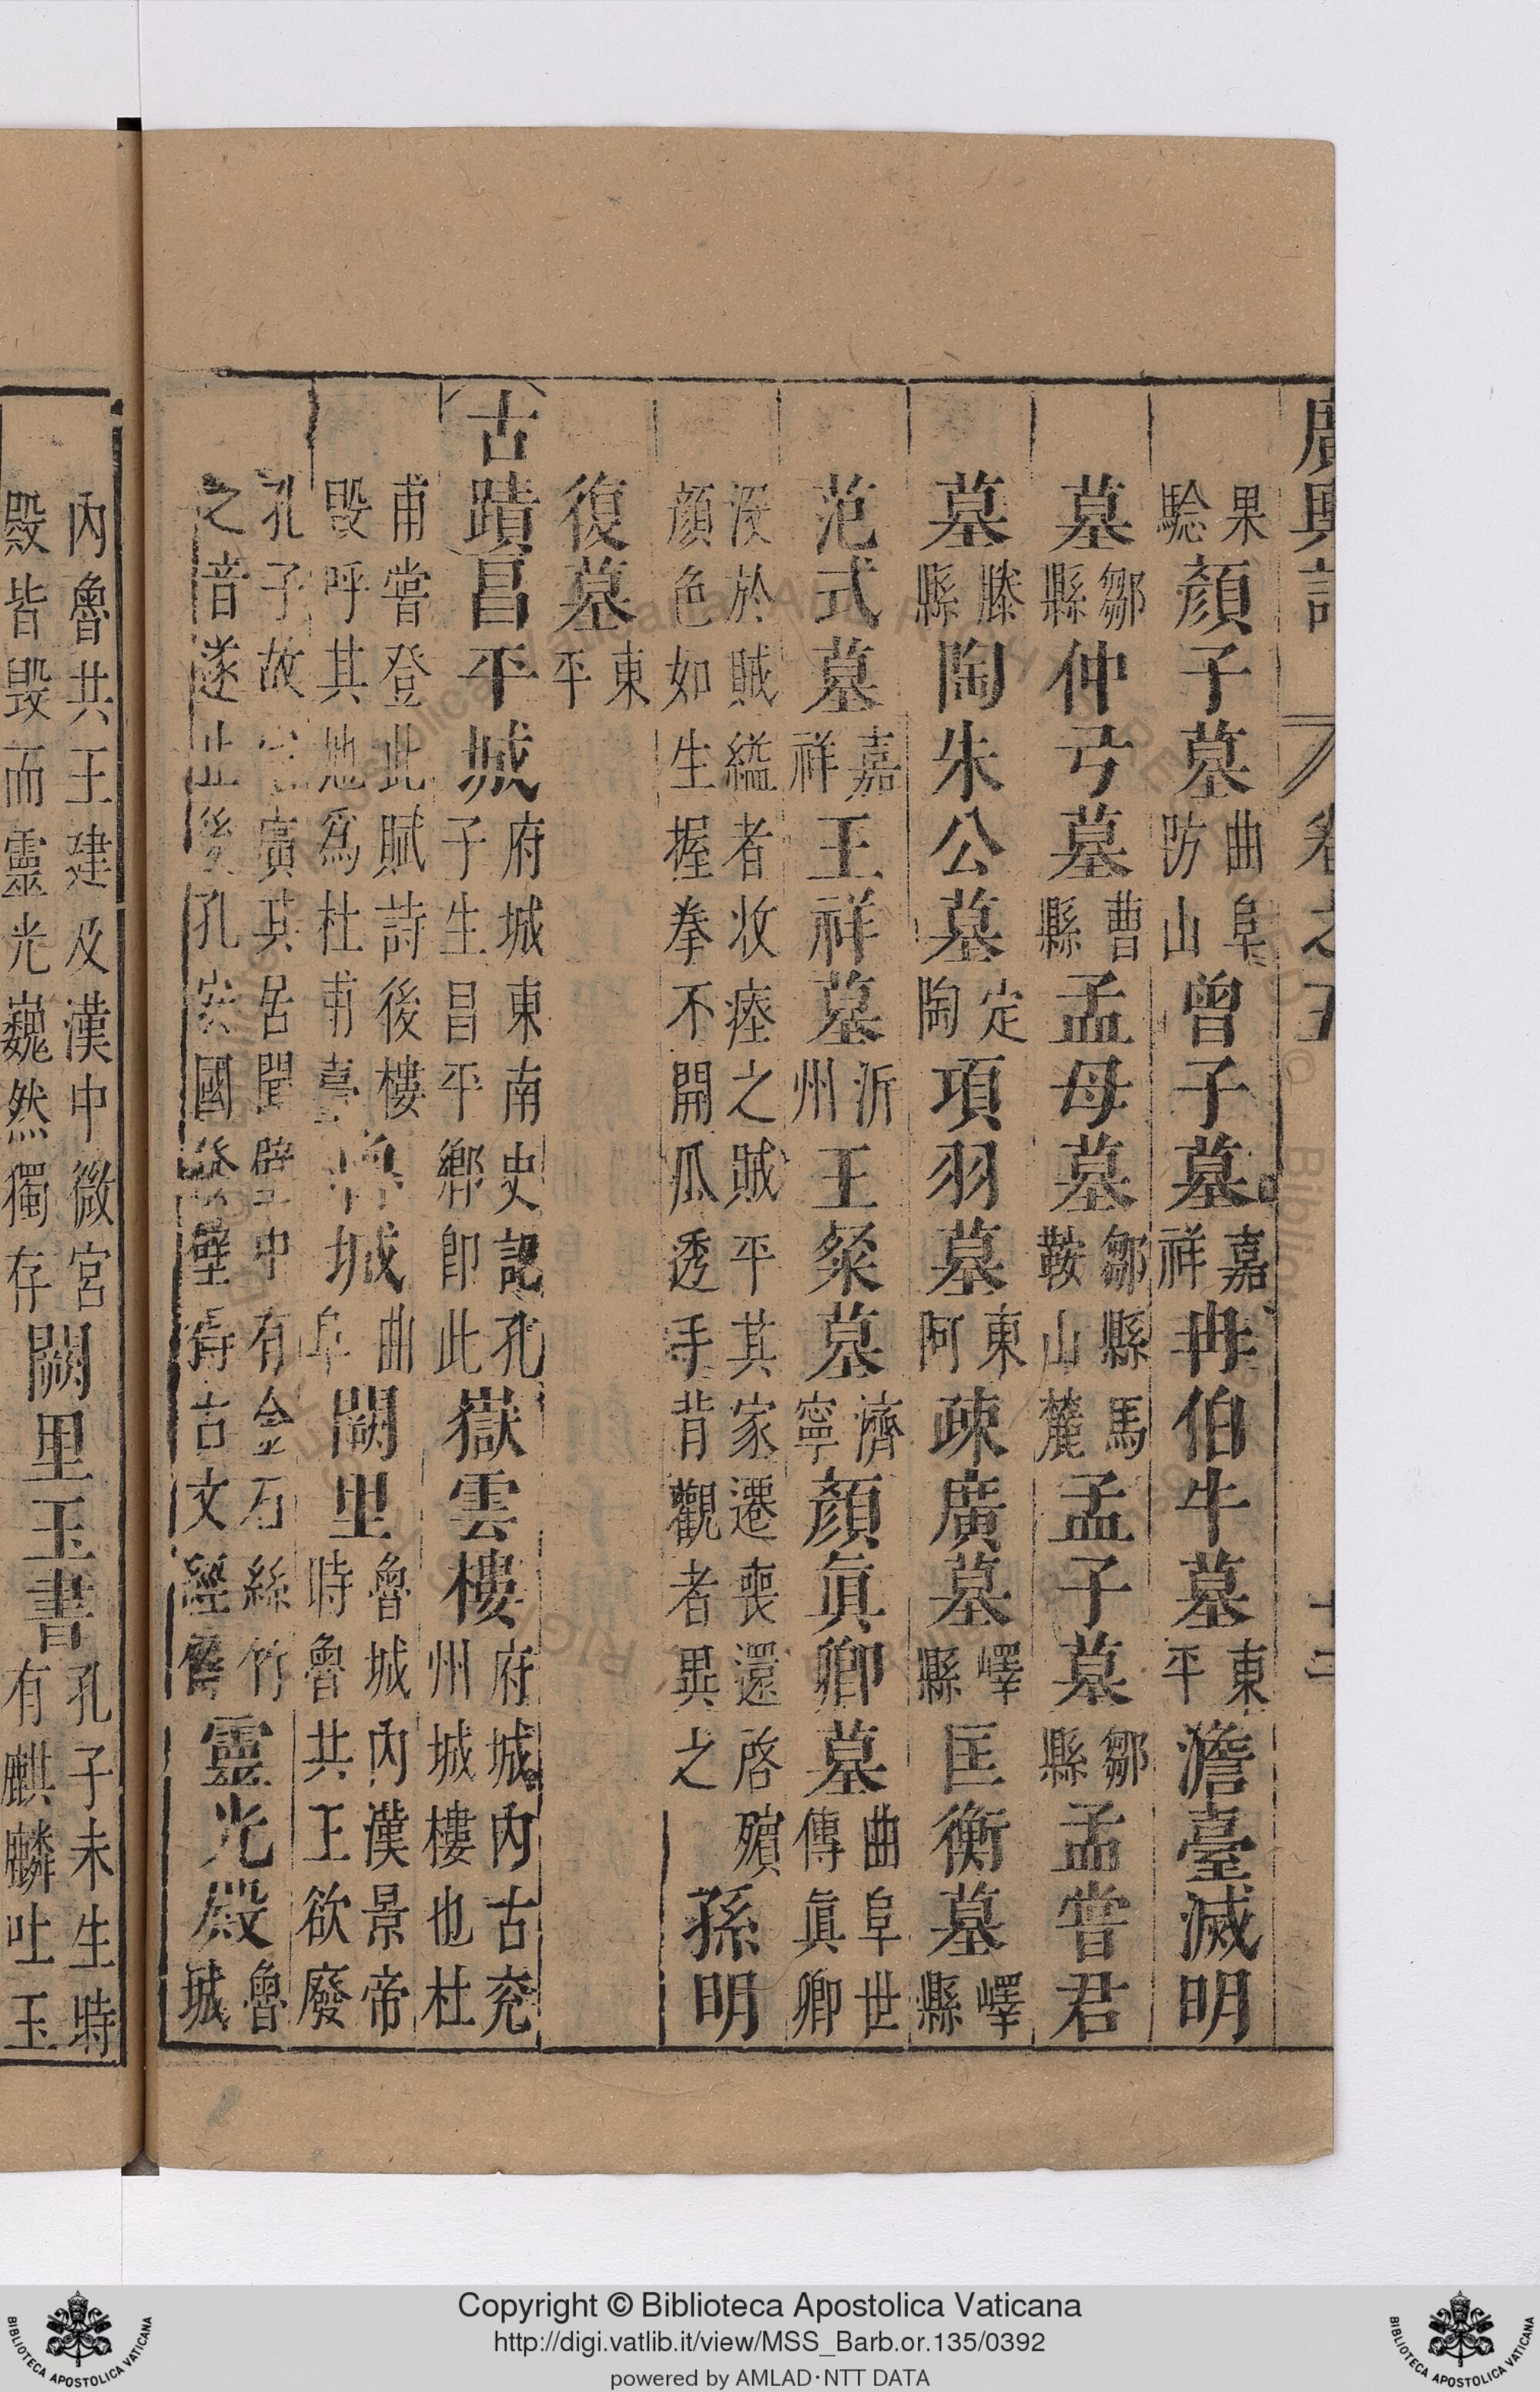 廣輿記 卷之五
果騐顏子墓曲阜防山曾子墓嘉祥冉伯牛墓東平澹臺滅明
墓鄒縣仲弓墓曹縣孟母墓鄒縣馬鞍山麓孟子墓鄒縣孟嘗君
墓滕縣陶朱公墓定陶項羽墓東阿疎廣墓嶧縣匡衡墓嶧縣
范式墓嘉祥王祥墓沂州王粲墓濟寧顏眞卿墓曲阜世傳眞卿
沒於賊縊者收瘞之賊平其家遷喪還啓殯顏色如生握拳不開爪透手背觀者異之孫明
復墓東平
古蹟昌平城府城東南史記孔子生昌平鄉卽此嶽雲樓府城內古兖州城樓也杜
甫嘗登此賦詩後樓毀呼其地爲杜甫臺城曲阜闕里魯城內漢景帝時魯共王欲廢
孔子故宅廣其居聞壁中有金石絲竹之音遂止後孔安國發壁得古文經傳靈光殿魯城
內魯共王建及漢中微宮殿皆毀而靈光巍然獨存闕里玉書孔子未生時有麒麟吐玉
Copyright © Biblioteca Apostolica Vaticana
http://digi.vatlib.it/view/MSS_Barb.or.135/0392
powered by AMLAD·NTT DATA
BIBLIOTECA APOSTOLICA VATICANA
BIBLIOTECA APOSTOLICA VATICANA